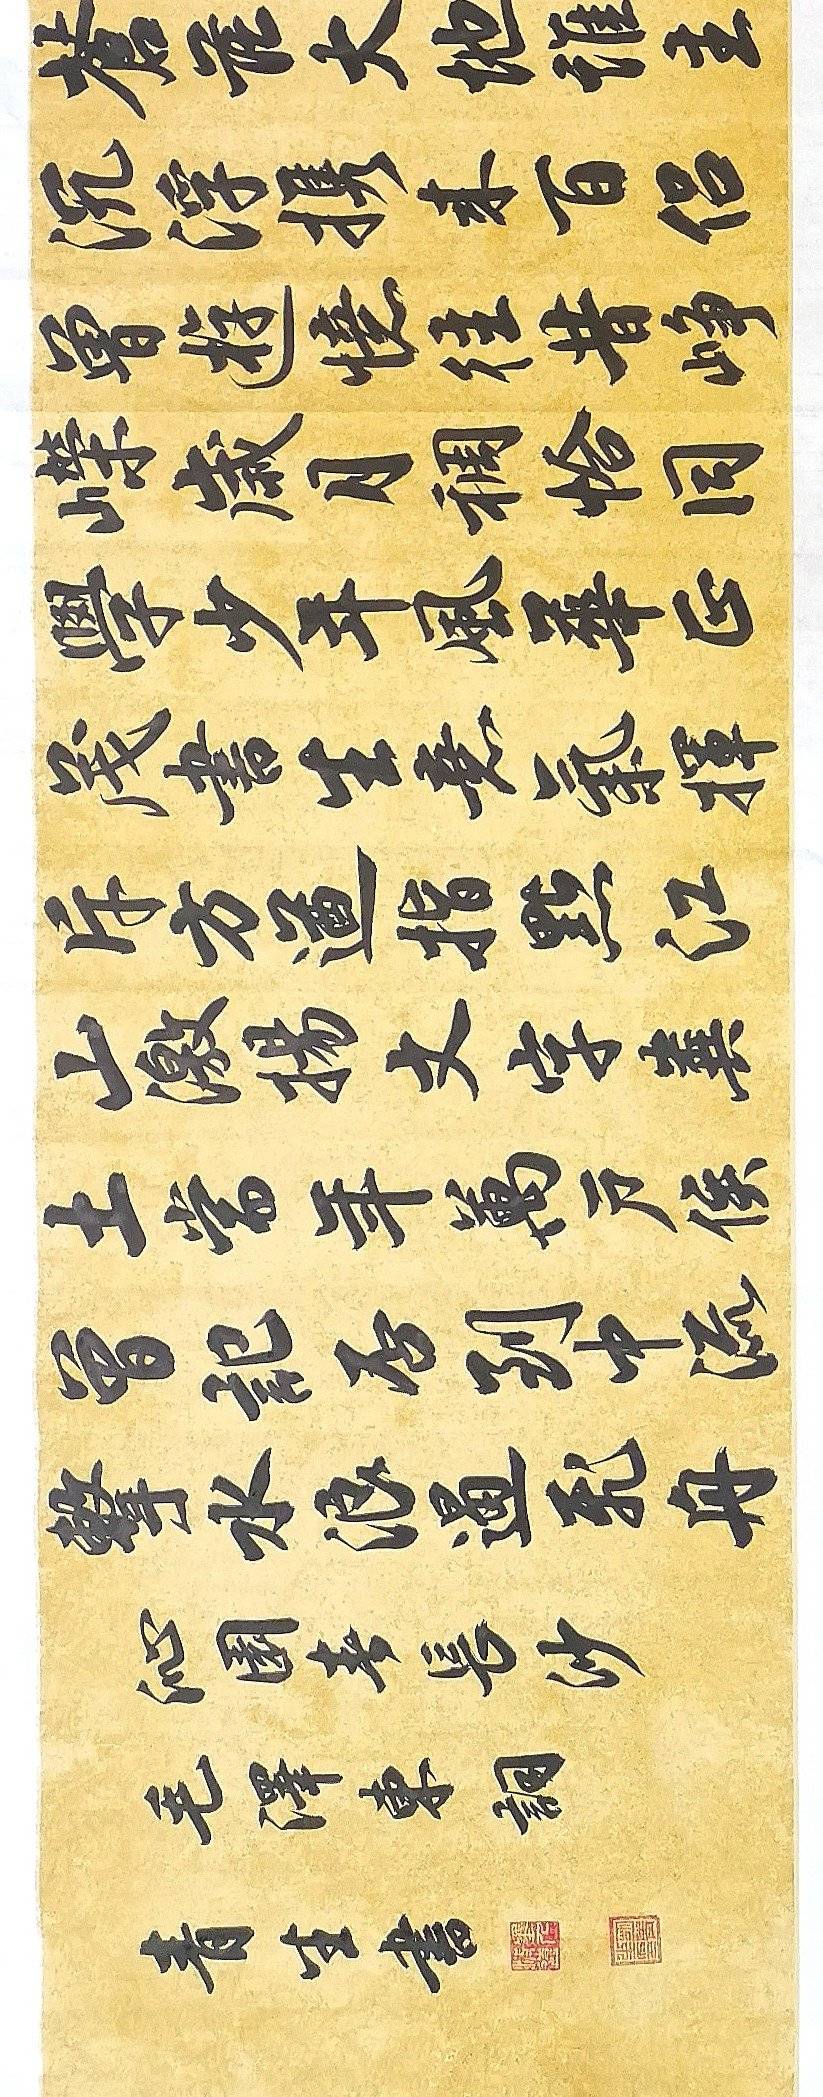 蒼茫大地誰主
沉浮攜來百侶
曾遊憶往昔崢
嶸歲月稠恰同
學少年風華正
茂書生意氣揮
斥方遒指點江
山激揚文字糞
土當年萬戶侯
曾記否到中流
擊水浪遏飛舟
沁園春長沙
毛澤東詞
書